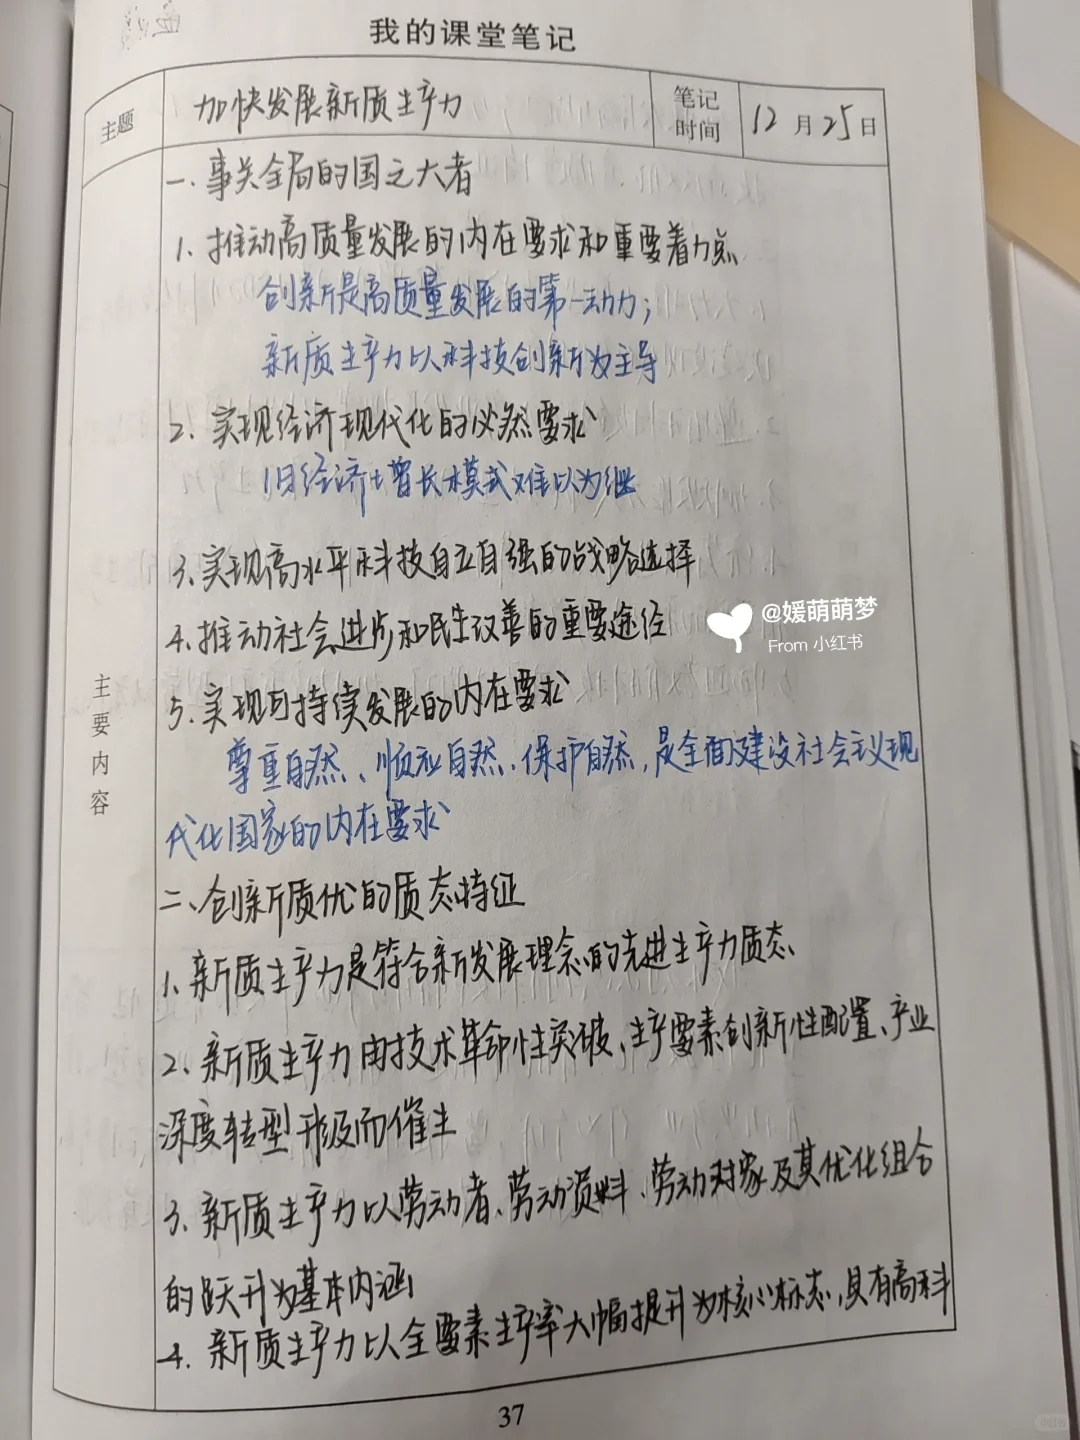 我的课堂笔记
主题
加快发展新质生产力
笔记时间
12月25日
主要内容
一.事关全局的国之大者
1.推动高质量发展的内在要求和重要着力点
创新是高质量发展的第一动力;
新质生产力以科技创新为主导
2.实现经济现代化的必然要求
旧经济增长模式难以为继
3.实现高水平科技自立自强的战略选择
4.推动社会进步和民生改善的重要途径
5.实现可持续发展的内在要求
尊重自然、顺应自然、保护自然,是全面建设社会主义现
代化国家的内在要求
二、创新质优的质态特征
1.新质生产力是符合新发展理念的先进生产力质态
2.新质生产力由技术革命性突破、生产要素创新性配置、产业
深度转型升级而催生
3.新质生产力以劳动者、劳动资料、劳动对象及其优化组合
的跃升为基本内涵
4.新质生产力以全要素生产率大幅提升为核心标志,具有高科
37
@媛萌萌梦
From 小红书